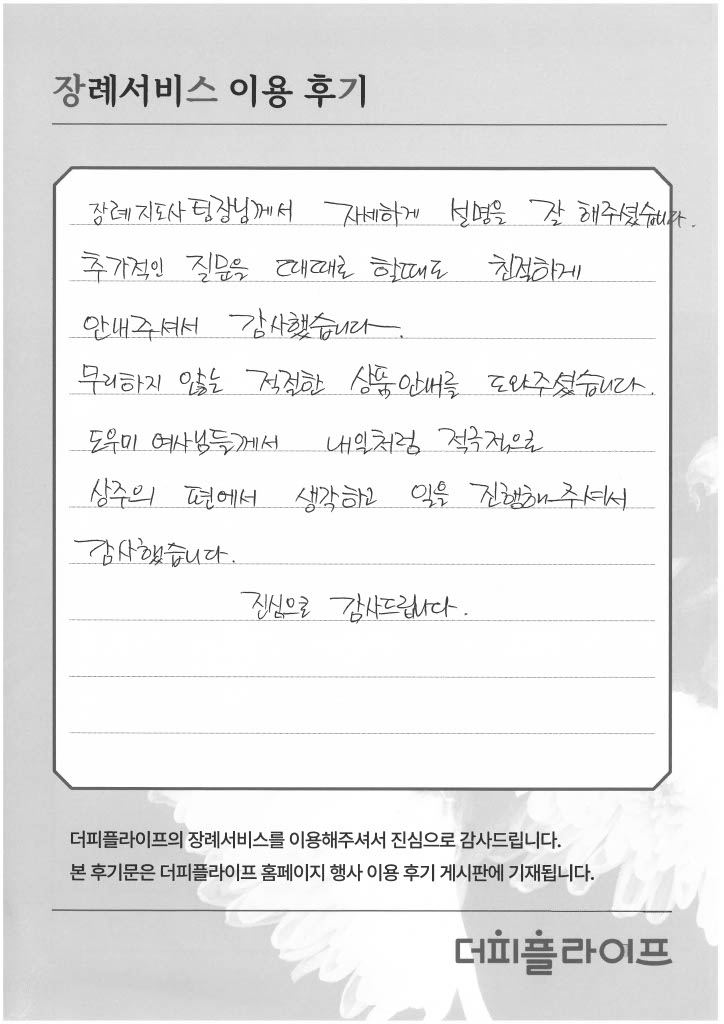 장례서비스 이용 후기
장례지도사 팀장님께서 자세하게 설명을 잘 해주셨습니다.
추가적인 질문을 때때로 할때도 친절하게
안내주셔서 감사했습니다.
무리하지 않는 적절한 상품안내를 도와주셨습니다.
도우미 여사님들께서 내일처럼 적극적으로
상주의 편에서 생각하고 일을 진행해주셔서
감사했습니다.
진심으로 감사드립니다.
더피플라이프의 장례서비스를 이용해주셔서 진심으로 감사드립니다.
본 후기문은 더피플라이프 홈페이지 행사 이용 후기 게시판에 기재됩니다.
더피플라이프